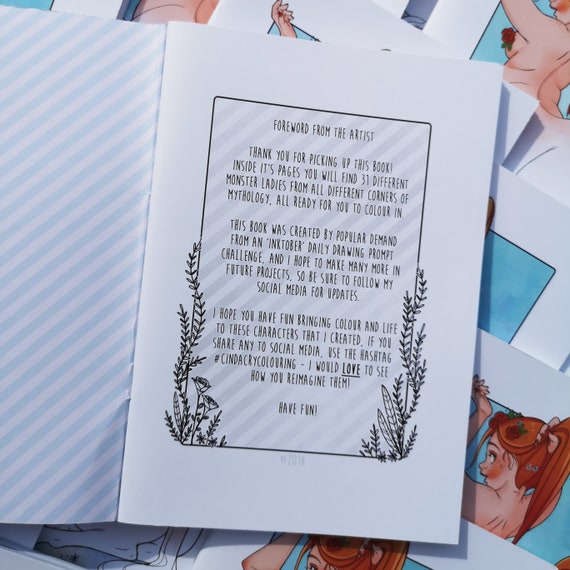 FOREWORD FROM THE ARTIST
THANK YOU FOR PICKING UP THIS BOOK!
INSIDE IT'S PAGES YOU WILL FIND 31 DIFFERENT
MONSTER LADIES FROM ALL DIFFERENT CORNERS OF
MYTHOLOGY, ALL READY FOR YOU TO COLOUR IN.
THIS BOOK WAS CREATED BY POPULAR DEMAND
FROM AN 'INKTOBER' DAILY DRAWING PROMPT
CHALLENGE, AND I HOPE TO MAKE MANY MORE IN
FUTURE PROJECTS, SO BE SURE TO FOLLOW MY
SOCIAL MEDIA FOR UPDATES.
I HOPE YOU HAVE FUN BRINGING COLOUR AND LIFE
TO THESE CHARACTERS THAT I CREATED, IF YOU
SHARE ANY TO SOCIAL MEDIA, USE THE HASHTAG
#CINDACRYCOLOURING - I WOULD LOVE TO SEE
HOW YOU REIMAGINE THEM!
HAVE FUN!